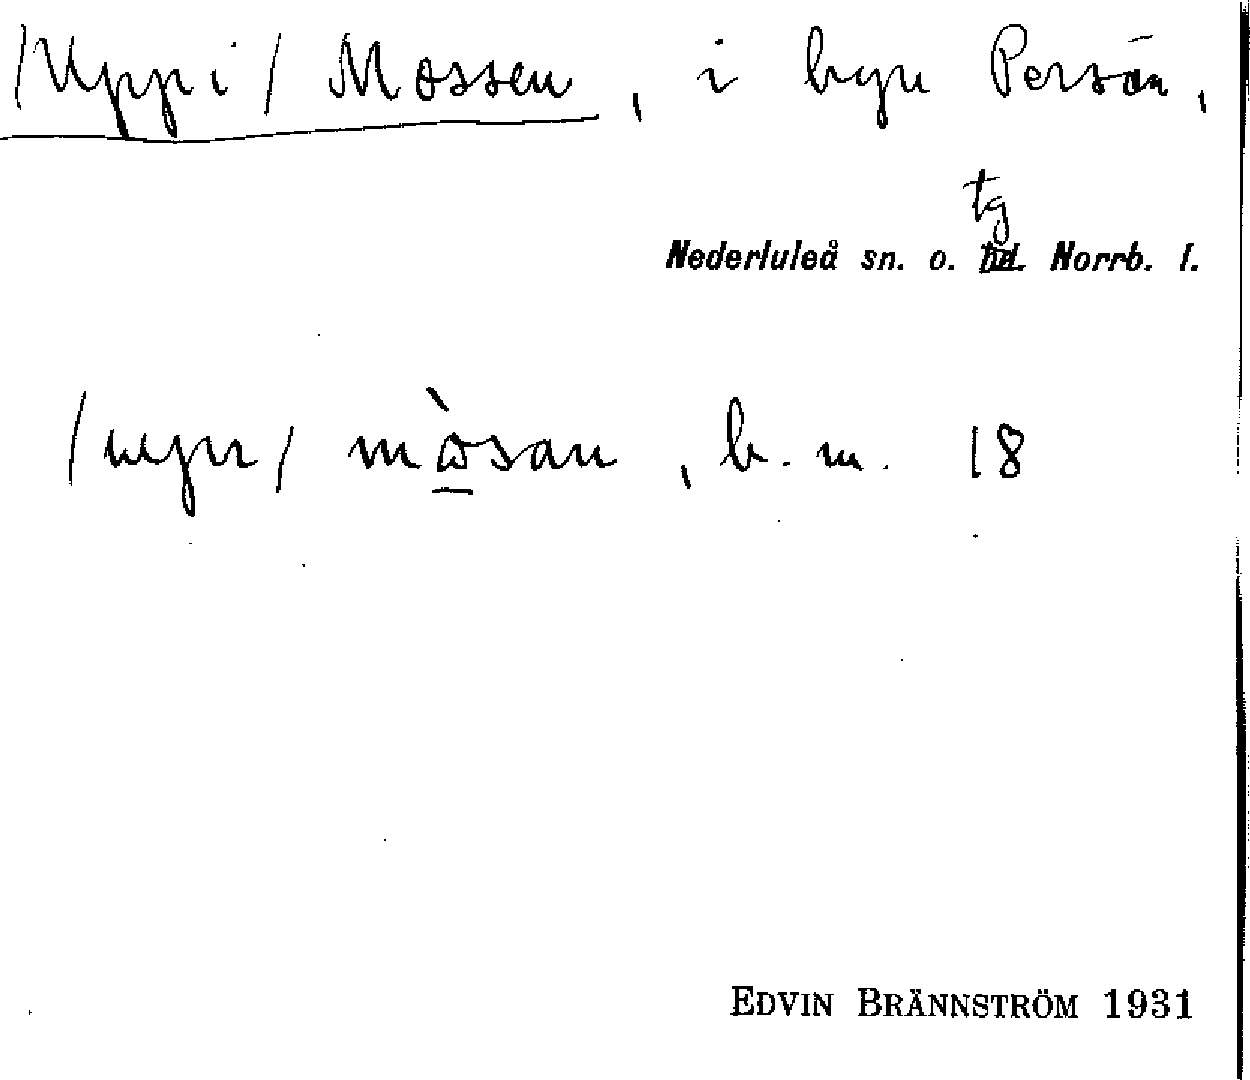 /Uppi/ Mossen, i byn Persön,
tg
Nederluleå sn. o. hd. Norrb. l.
/upı/ mòsan, b. m. 18
EDVIN BRÄNNSTRÖM 1931